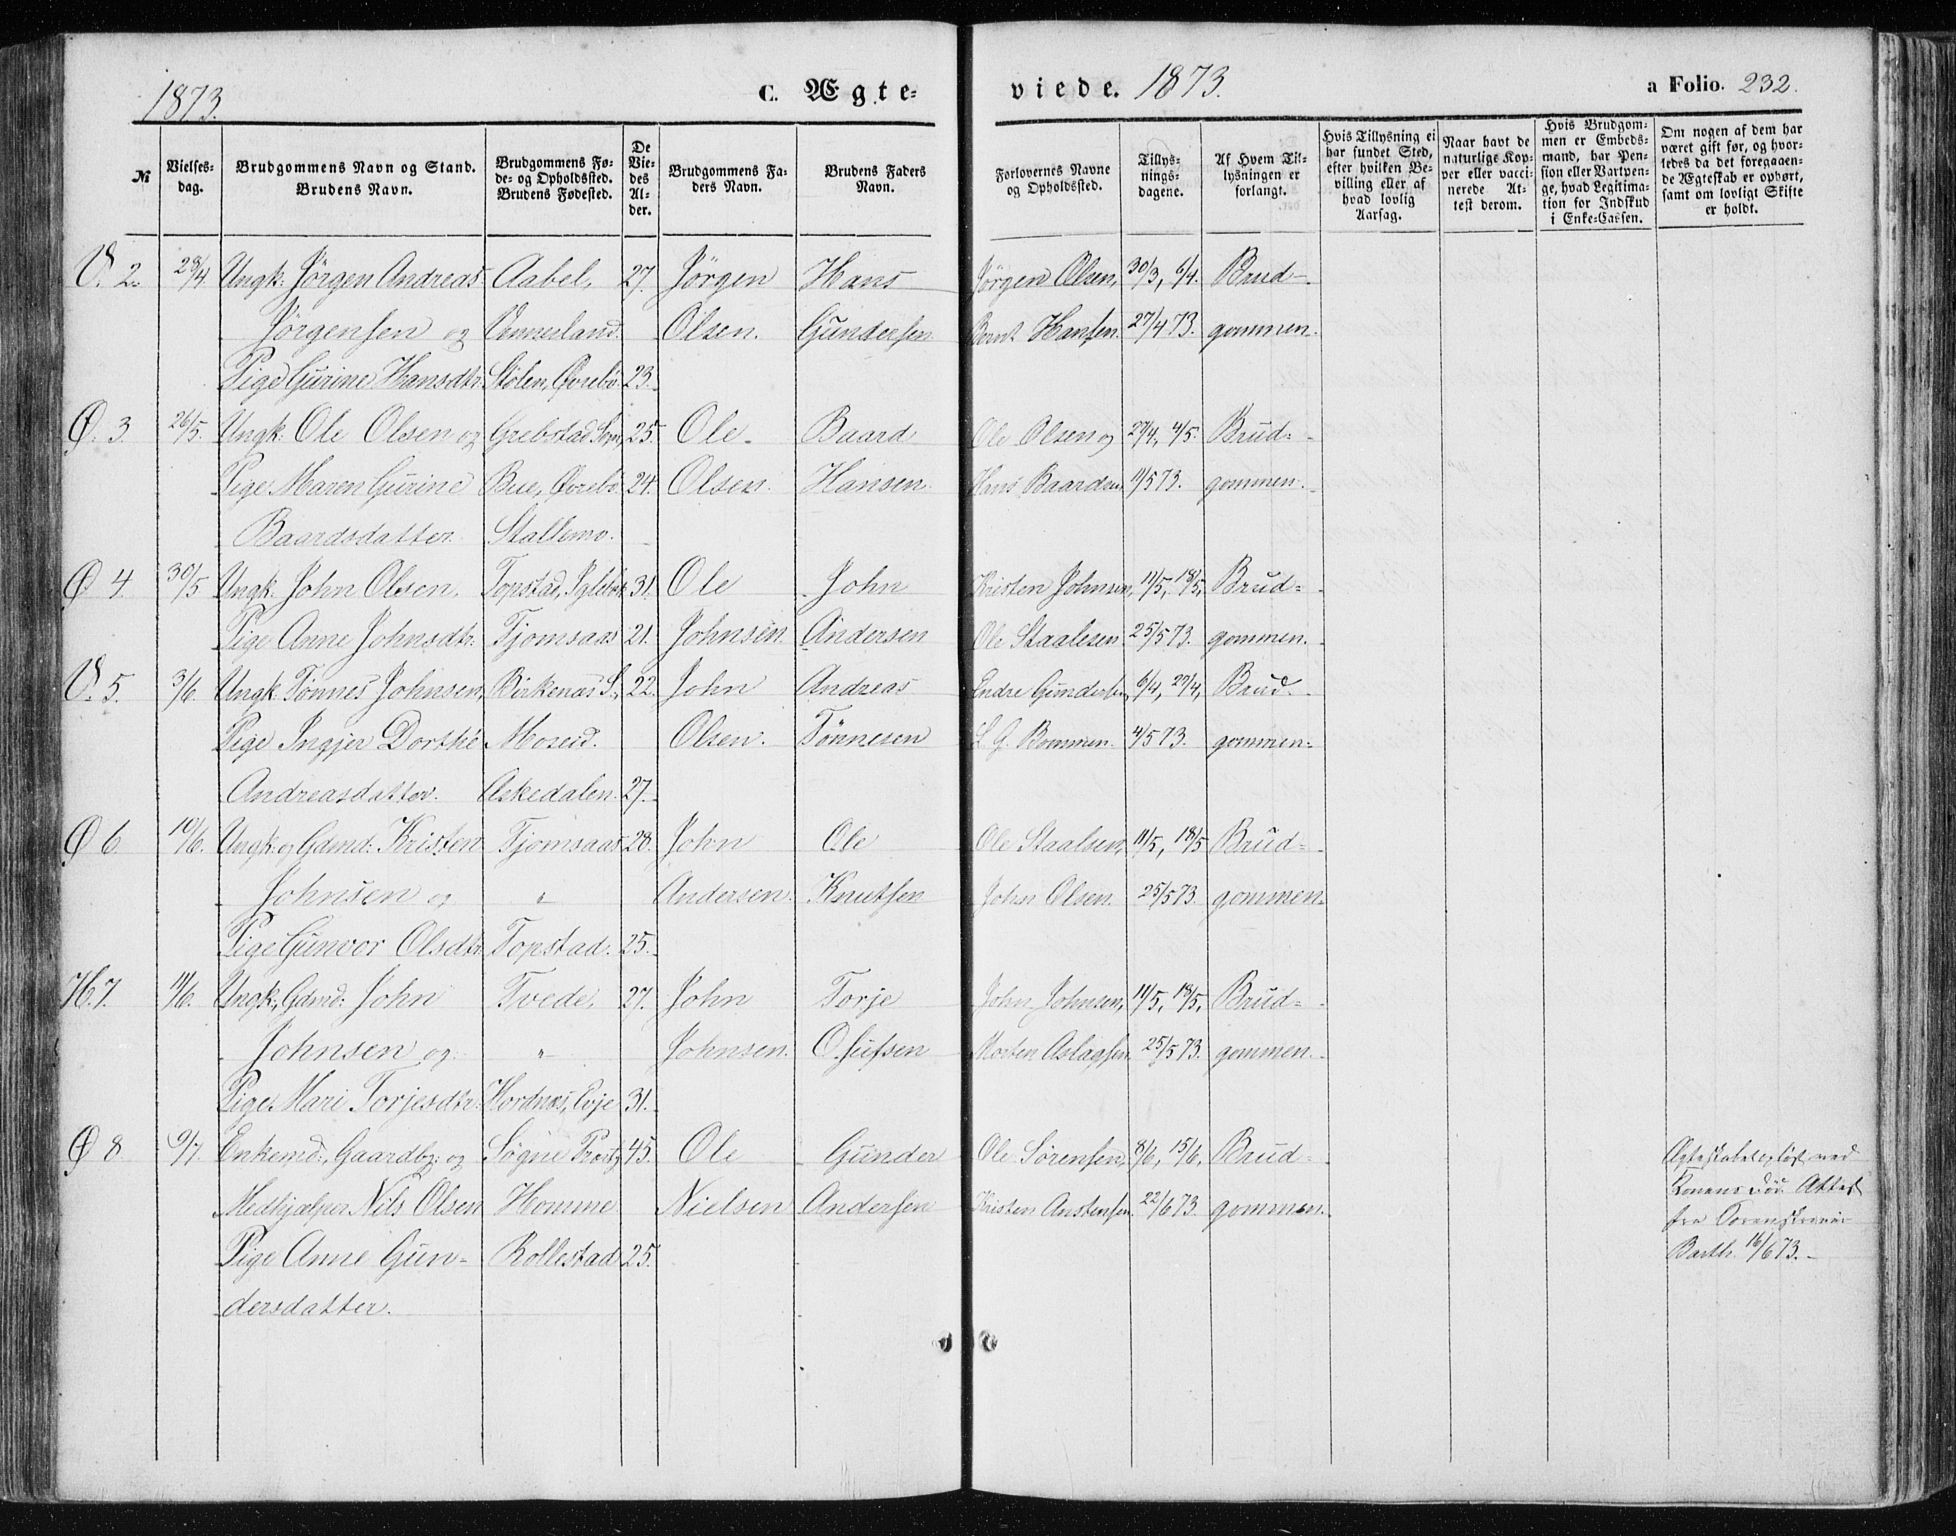 1873. C. Ægteviede. 1873. a Folio. 232.
№
Vielsesdag.
Brudgommens Navn og Stand.
Brudens Navn.
Brudgommens Føde- og Opholdsted.
Brudens Fødested.
De Viedes Alder.
Brudgommens Faders Navn.
Brudens Faders Navn.
Forlovernes Navne og Opholdsted.
Tillysningsdagene.
Af Hvem Tillysningen er forlangt.
Hvis Tillysning ei har fundet Sted, efter hvilken Bevilling eller af hvad lovlig Aarsag.
Naar havt de naturlige Kopper eller vaccinerede Attest derom.
Hvis Brudgommen er Embedsmand, har Pension eller Vartpenge, hvad Legitimation for Indskud i Enke-Cassen.
Om nogen af dem har været gift før, og hvorledes da det foregaaende Ægteskab er ophørt, samt om lovligt Skifte er holdt.
V. 2. 28/4 Ungk: Jörgen Andreas Aabel, 27. Jörgen Hans Jörgen Olsen, 30/3, 6/4. Brud-
Jörgensen og Vennesland. Olsen. Gundersen Bernt Hansen. 27/4 73. gommen.
Pige Gurine Hansdtr. Stölen, Øvrebö 23.
Ø. 3. 26/5. Ungk: Ole Olsen og Grebstad Sogn, 25. Ole Baard Ole Olsen og 27/4, 4/5. Brud-
Pige Maren Gurine Bue, Øvrebö 24. Olsen. Hansen. Hans Baardsen 11/5 73. gommen.
Baardsdatter. Stallemo.
Ø 4. 30/5 Ungk. John Olsen. Topstad, 31. Ole John Kristen Johnsen, 11/5, 18/5, Brud-
Pige Anne Johnsdtr. Tjomsaas 21. Johnsen. Andersen Ole Staalesen 25/5 73. gommen.
V. 5. 3/6. Ungk. Tönnes Johnsen, Birkenæs S., 22. John Andreas Endre Gundersen, 6/4, 27/4, Brud-
Pige Ingjer Dorthe Moseid. Olsen. Tönnesen L. G. Bommen. 4/5 73. gommen.
Andreasdatter. Askedalen. 27.
Ø 6. 10/6. Ungk. og Gdmd: Kristen Tjomsaas 28. John Ole Ole Staalsen, 11/5, 18/5 Brud-
Johnsen og " Andersen. Knutsen John Olsen. 25/5 73. gommen.
Pige Gunvor Olsdtr. Topstad. 25.
H. 7. 11/6. Ungk., Gdmd: John Tvede, 27. John Torje John Johnsen, 11/5, 18/5, Brud-
Johnsen og " Johnsen. Osufsen Morten Aslagsen 25/5 73. gommen.
Pige Mari Torjesdtr. Hordnes, Evje 31.
Ø 8. 9/7. Enkemd:, Gaardbg: og Søgne Præstg 45. Ole Gunder Ole Sörensen, 8/6, 15/6, Brud- Ægteskabet oplöst ved
Medhjælper Nils Olsen Homme Nielsen Andersen Kristen Anstensen. 22/6 73. gommen. Konens Död. Attest
Pige Anne Gun- Rollestad 25. fra Sorenskriver
dersdatter. Barth. 16/6 73.